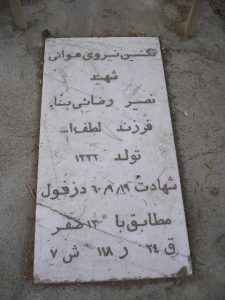 تکنسین نیروی هوائی
شهید
نصیر رضائی بینا
فرزند لطف ا...
تولد ۱۳۳۲
شهادت ۶۰/۹/۱۹ دزفول
مطابق با ۱۳ صفر
ق ۲۴ ر ۱۱۸ ش ۷